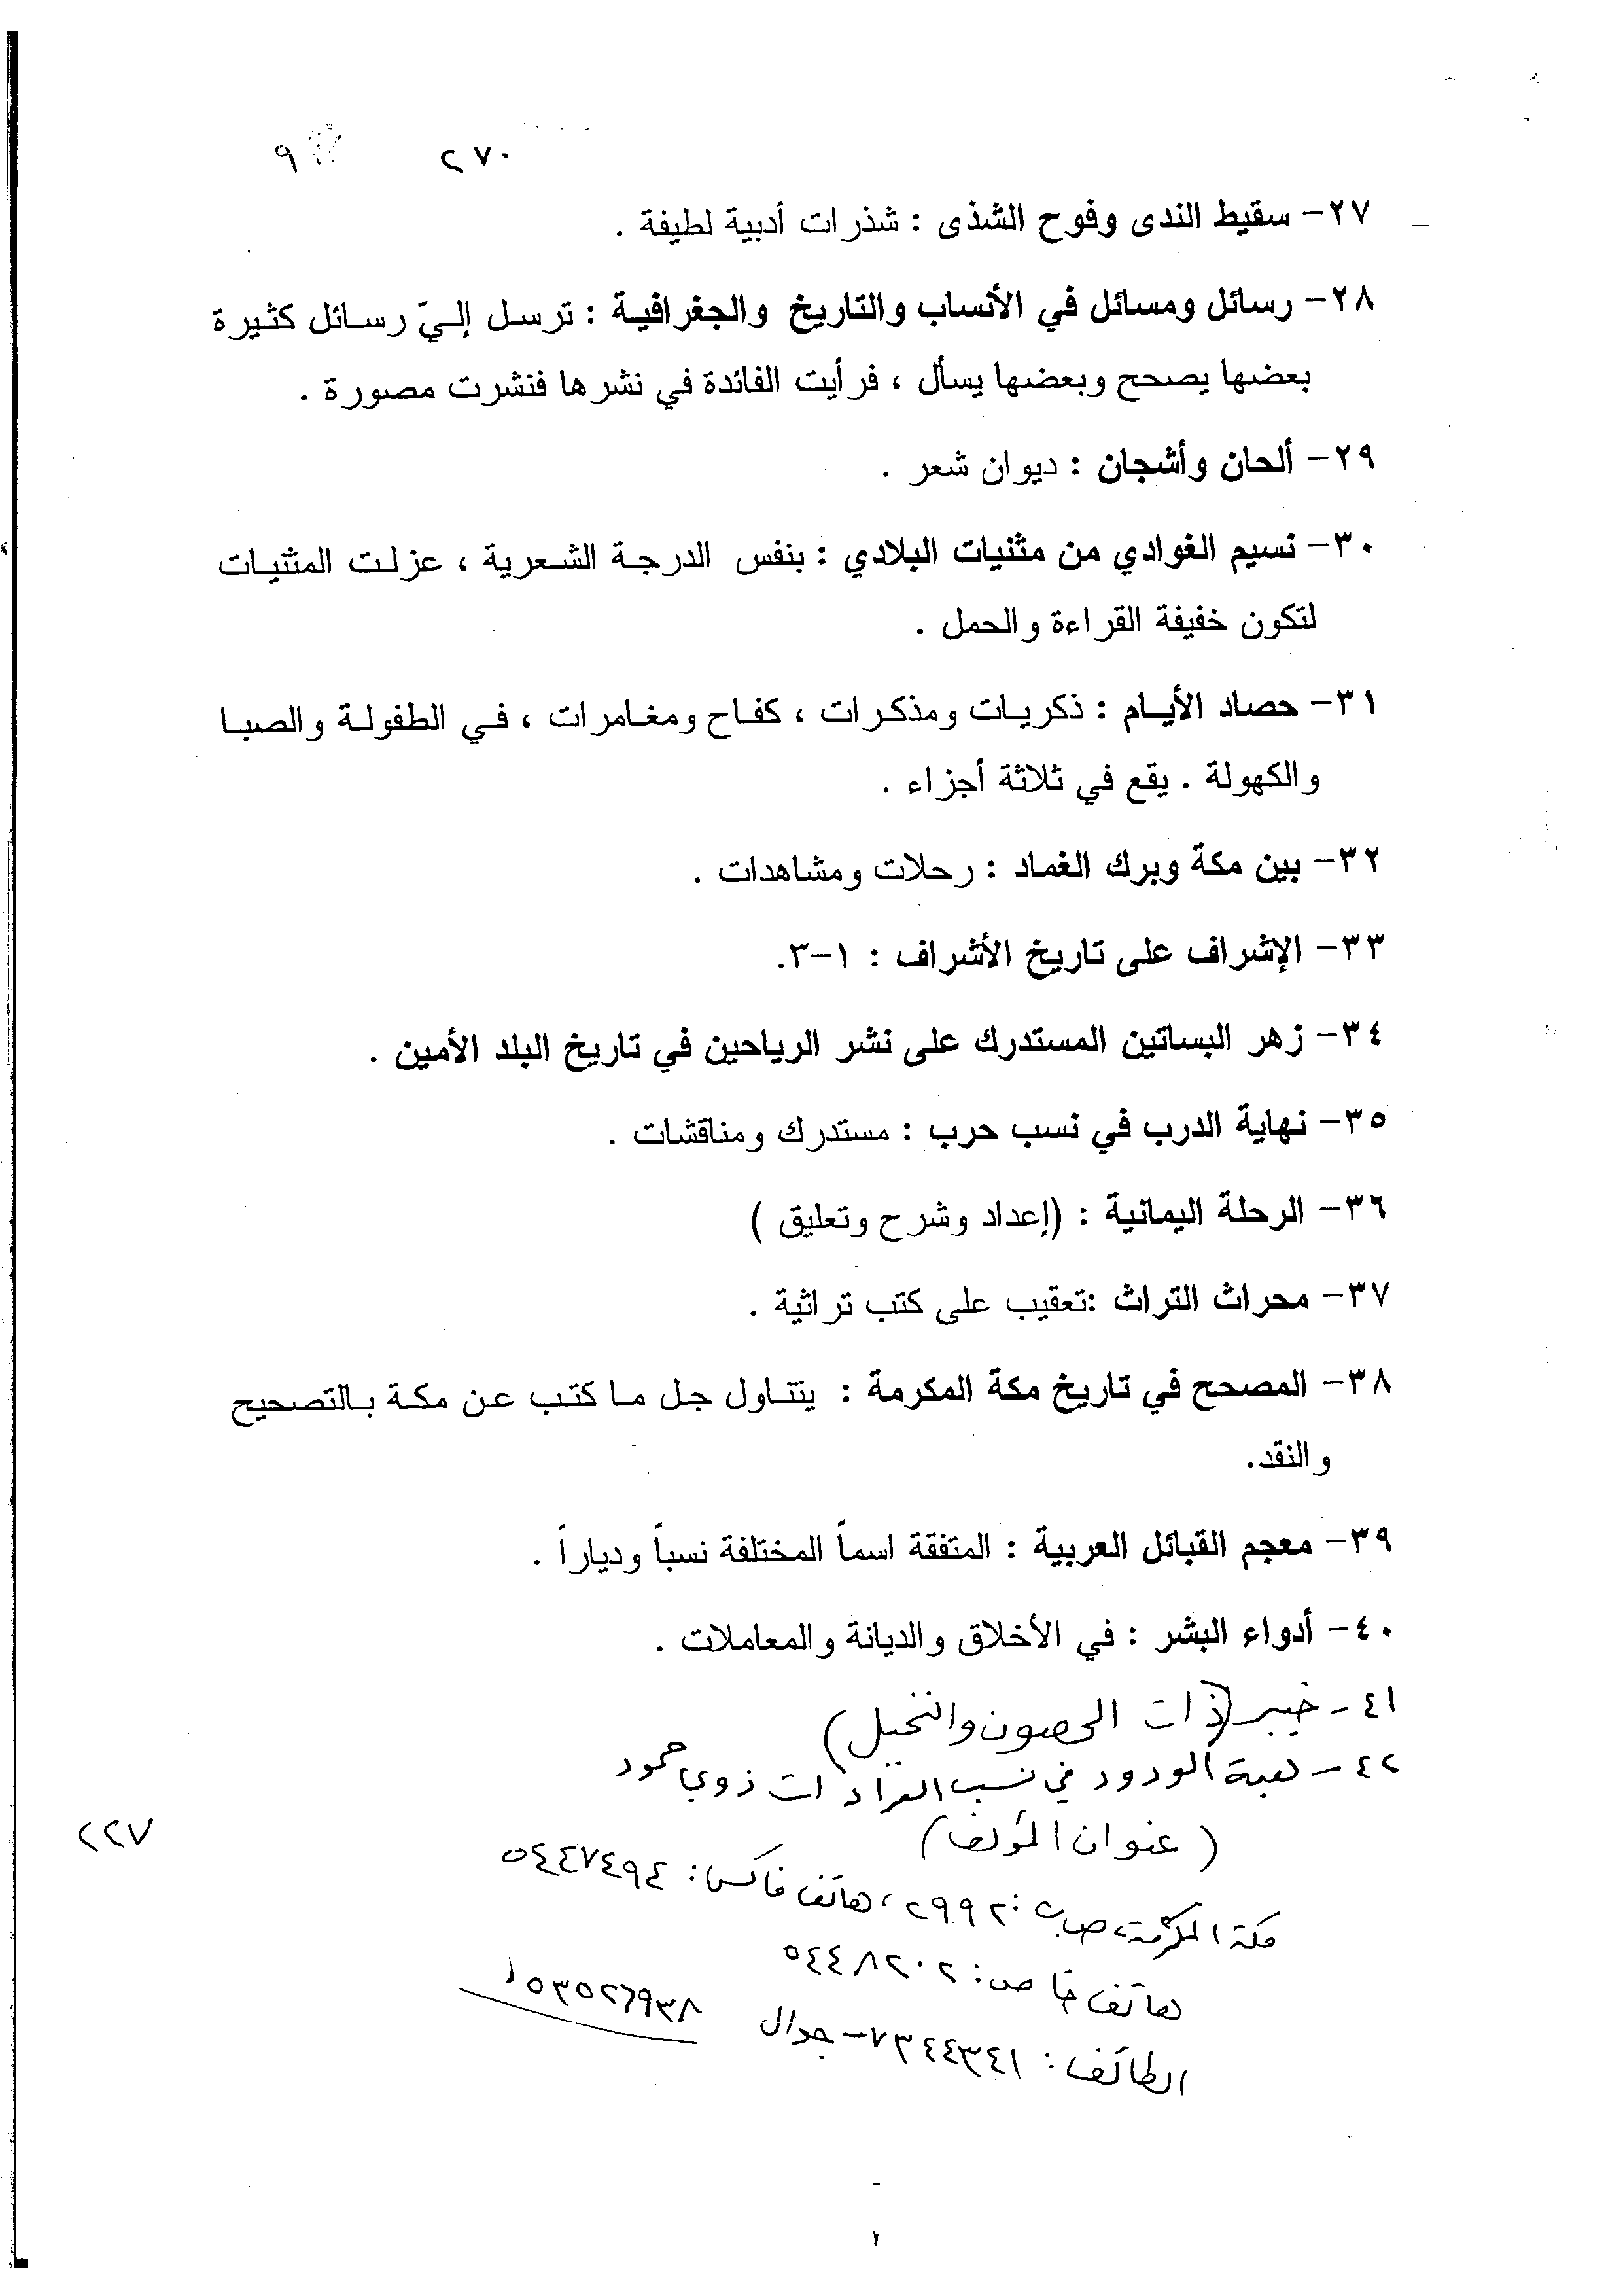 ٢٧٠ ٩
٢٧- سقيط الندى وفوح الشذى : شذرات أدبية لطيفة .
٢٨- رسائل ومسائل في الأنساب والتاريخ والجغرافية : ترسل إليّ رسائل كثيرة
بعضها يصحح وبعضها يسأل ، فرأيت الفائدة في نشرها فنشرت مصورة .
٢٩- ألحان وأشجان : ديوان شعر .
٣٠- نسيم الغوادي من مثنيات البلادي : بنفس الدرجة الشعرية ، عزلت المثنيات
لتكون خفيفة القراءة والحمل .
٣١- حصاد الأيام : ذكريات ومذكرات ، كفاح ومغامرات ، في الطفولة والصبا
والكهولة . يقع في ثلاثة أجزاء .
٣٢- بين مكة وبرك الغماد : رحلات ومشاهدات .
٣٣- الإشراف على تاريخ الأشراف : ١-٣.
٣٤- زهر البساتين المستدرك على نشر الرياحين في تاريخ البلد الأمين .
٣٥- نهاية الدرب في نسب حرب : مستدرك ومناقشات .
٣٦- الرحلة اليمانية : (إعداد وشرح وتعليق )
٣٧- محراث التراث :تعقيب على كتب تراثية .
٣٨- المصحح في تاريخ مكة المكرمة : يتناول جل ما كتب عن مكة بالتصحيح
والنقد.
٣٩- معجم القبائل العربية : المتفقة اسماً المختلفة نسباً ودياراً .
٤٠- أدواء البشر : في الأخلاق والديانة والمعاملات .
٤١- خيبر (ذات الحصون والنخيل)
٤٢- هبة الودود في نسب القرادات ذوي حمود
(عنوان المؤلف)
٢٢٧
مكة المكرمة، ص ب : ٢٩٩٢ ، هاتف فاكس: ٥٤٤٧٤٩٤
هاتف خاص: ٥٤٤٨٢٠٢
الطائف: ٧٣٤٤٣٤١ - جوال
٢